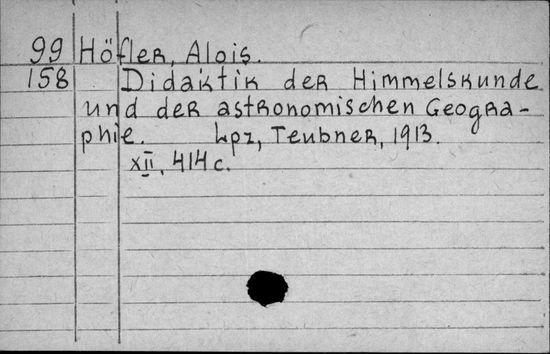 99 Höfler, Alois.
158 Didaktik der Himmelskunde
und der astronomischen Geogra-
phie. Lpz, Teubner, 1913.
XII, 414 c.